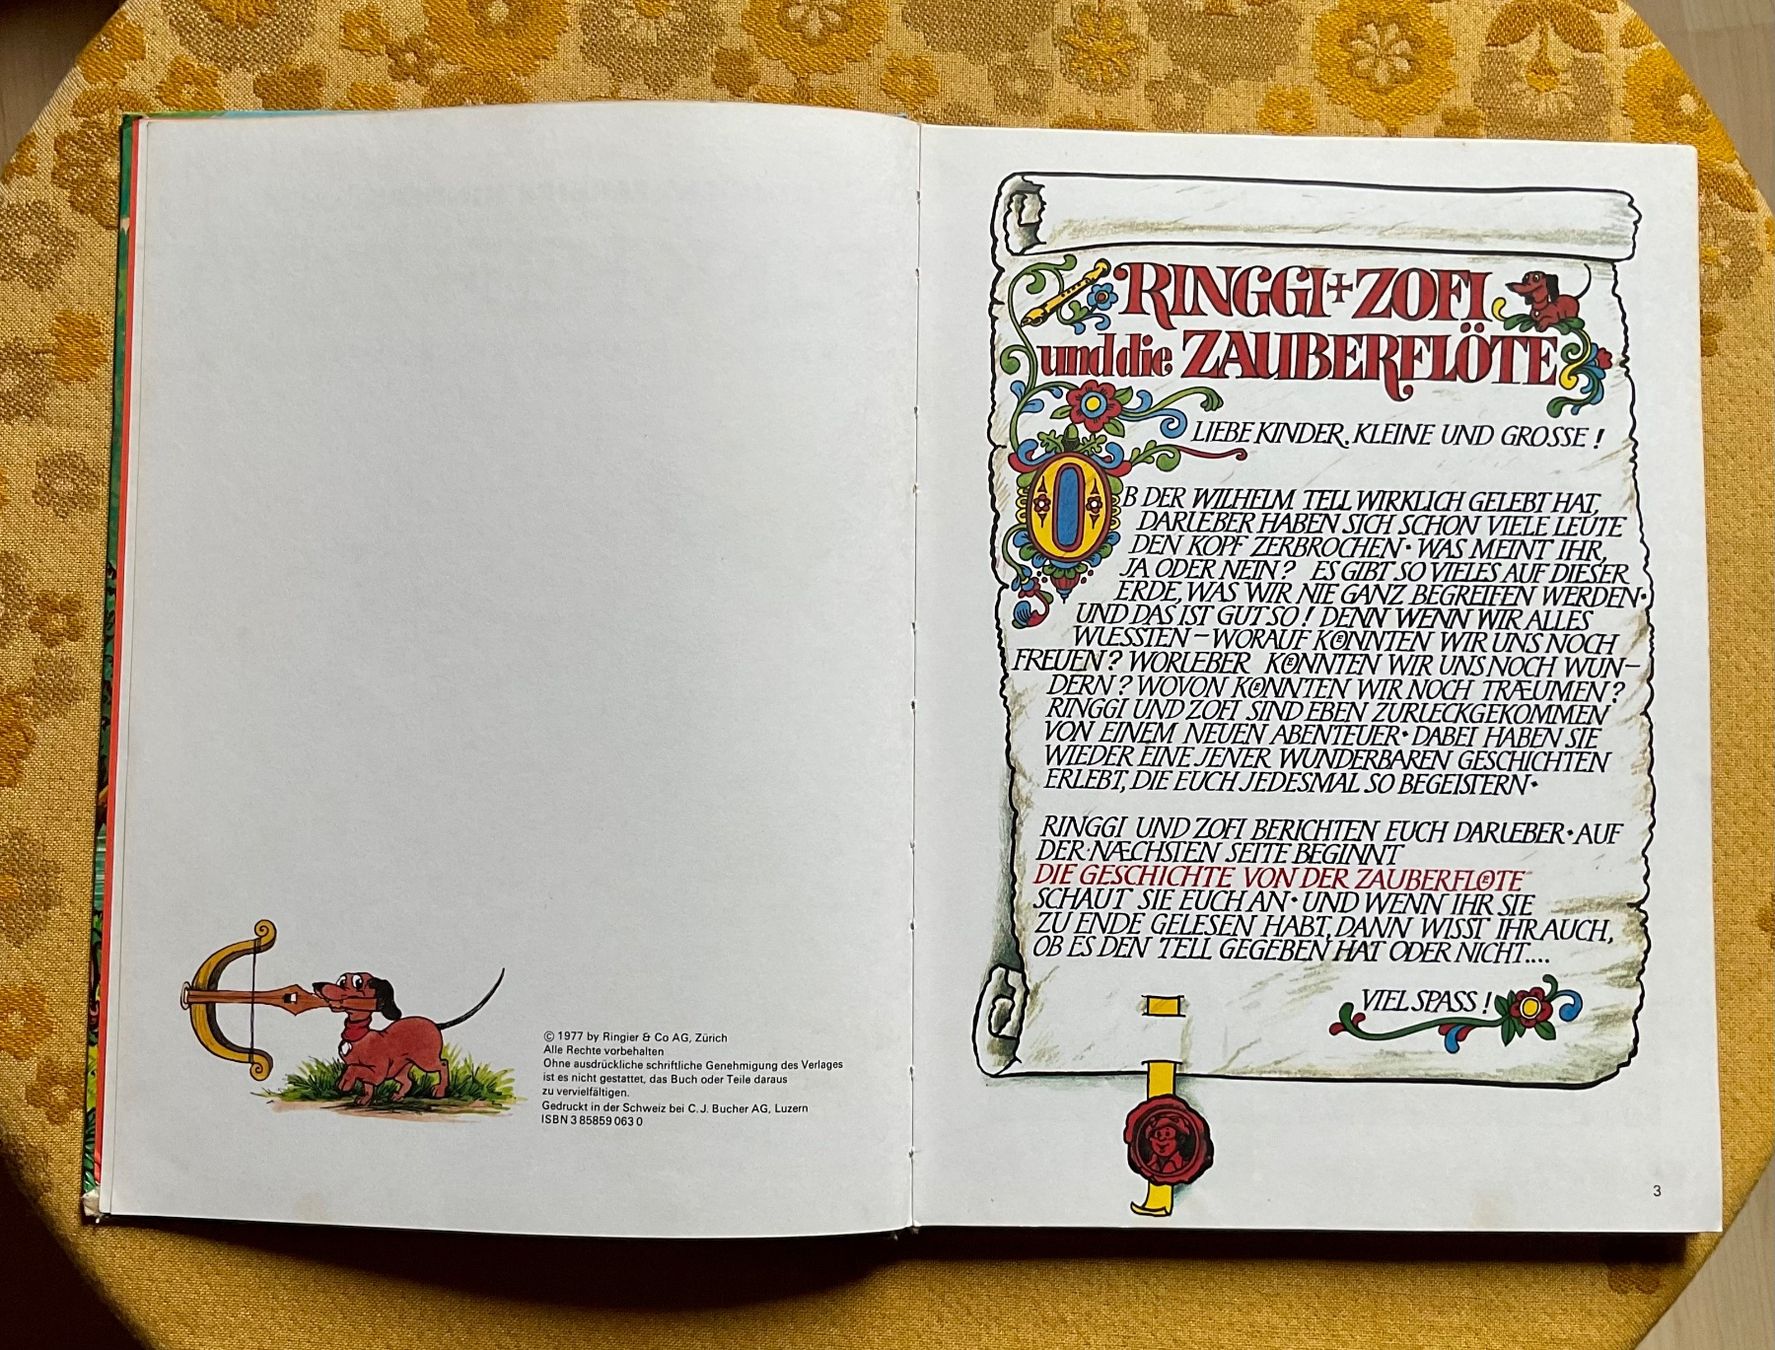 © 1977 by Ringier & Co AG, Zürich
Alle Rechte vorbehalten
Ohne ausdrückliche schriftliche Genehmigung des Verlages
ist es nicht gestattet, das Buch oder Teile daraus
zu vervielfältigen.
Gedruckt in der Schweiz bei C. J. Bucher AG, Luzern
ISBN 3 85859 063 0
RINGGI+ZOFI
und die ZAUBERFLÖTE
LIEBE KINDER, KLEINE UND GROSSE!
OB DER WILHELM TELL WIRKLICH GELEBT HAT,
DARUEBER HABEN SICH SCHON VIELE LEUTE
DEN KOPF ZERBROCHEN· WAS MEINT IHR,
JA ODER NEIN? ES GIBT SO VIELES AUF DIESER
ERDE, WAS WIR NIE GANZ BEGREIFEN WERDEN·
UND DAS IST GUT SO! DENN WENN WIR ALLES
WUESSTEN – WORAUF KOENNTEN WIR UNS NOCH
FREUEN? WORUEBER KOENNTEN WIR UNS NOCH WUN–
DERN? WOVON KOENNTEN WIR NOCH TRÆUMEN?
RINGGI UND ZOFI SIND EBEN ZURUECKGEKOMMEN
VON EINEM NEUEN ABENTEUER· DABEI HABEN SIE
WIEDER EINE JENER WUNDERBAREN GESCHICHTEN
ERLEBT, DIE EUCH JEDESMAL SO BEGEISTERN·
RINGGI UND ZOFI BERICHTEN EUCH DARUEBER· AUF
DER NÆCHSTEN SEITE BEGINNT
DIE GESCHICHTE VON DER ZAUBERFLOETE
SCHAUT SIE EUCH AN· UND WENN IHR SIE
ZU ENDE GELESEN HABT, DANN WISST IHR AUCH,
OB ES DEN TELL GEGEBEN HAT ODER NICHT....
VIEL SPASS!
3